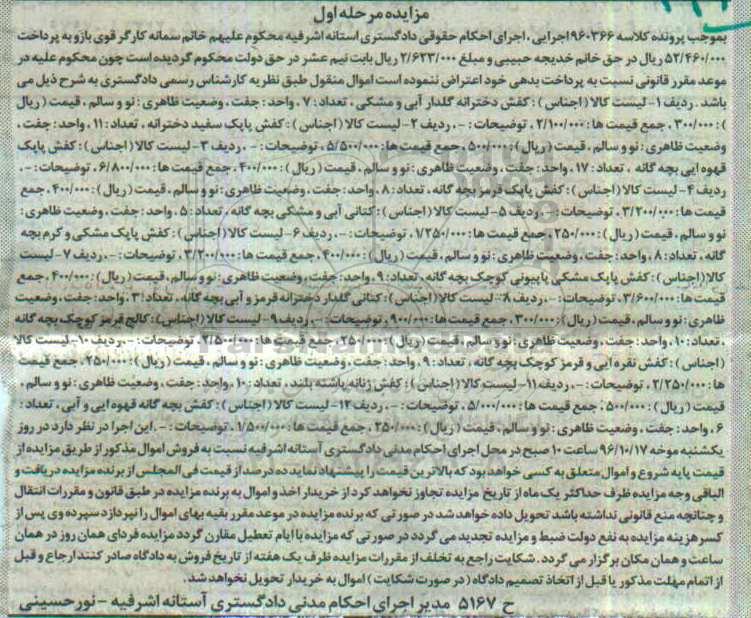 مزایده مرحله اول
بموجب پرونده کلاسه ۹۶۰۳۶۶ اجرایی ، اجرای احکام حقوقی دادگستری استانه اشرفیه محکوم علیهم خانم سمانه کارگر قوی بازو به پرداخت
۵۲/۴۶۰/۰۰۰ ریال در حق خانم خدیجه حبیبی و مبلغ ۲/۶۲۳/۰۰۰ ریال بابت نیم عشر در حق دولت محکوم گردیده است چون محکوم علیه در
موعد مقرر قانونی نسبت به پرداخت بدهی خود اعتراض ننموده است اموال منقول طبق نظریه کارشناس رسمی دادگستری به شرح ذیل می
باشد . ردیف ۱- لیست کالا (اجناس) : کفش دخترانه گلدار آبی و مشکی ، تعداد : ۷ ، واحد : جفت ، وضعیت ظاهری : نو و سالم ، قیمت (ریال
) : ۳۰۰/۰۰۰ ، جمع قیمت ها : ۲/۱۰۰/۰۰۰ ، توضیحات : - ، ردیف ۲- لیست کالا (اجناس) : کفش پاپک سفید دخترانه ، تعداد : ۱۱ ، واحد : جفت ،
وضعیت ظاهری : نو و سالم ، قیمت (ریال) : ۵۰۰/۰۰۰ ، جمع قیمت ها : ۵/۵۰۰/۰۰۰ ، توضیحات : - ، ردیف ۳- لیست کالا (اجناس) : کفش پاپک
قهوه ایی بچه گانه ، تعداد : ۱۷ ، واحد : جفت ، وضعیت ظاهری : نو و سالم ، قیمت (ریال) : ۴۰۰/۰۰۰ ، جمع قیمت ها : ۶/۸۰۰/۰۰۰ ، توضیحات : - ،
ردیف ۴- لیست کالا (اجناس) : کفش پاپک قرمز بچه گانه ، تعداد : ۸ ، واحد : جفت ، وضعیت ظاهری : نو و سالم ، قیمت (ریال) : ۴۰۰/۰۰۰ ، جمع
قیمت ها : ۳/۲۰۰/۰۰۰ ، توضیحات : - ، ردیف ۵- لیست کالا (اجناس) : کتانی آبی و مشکی بچه گانه ، تعداد : ۵ ، واحد : جفت ، وضعیت ظاهری :
نو و سالم ، قیمت (ریال) : ۲۵۰/۰۰۰ ، جمع قیمت ها : ۱/۲۵۰/۰۰۰ ، توضیحات : - ، ردیف ۶- لیست کالا (اجناس) : کفش پاپک مشکی و کرم بچه
گانه ، تعداد : ۸ ، واحد : جفت ، وضعیت ظاهری : نو و سالم ، قیمت (ریال) : ۴۰۰/۰۰۰ ، جمع قیمت ها : ۳/۲۰۰/۰۰۰ ، توضیحات : - ، ردیف ۷- لیست
کالا (اجناس) : کفش پاپک مشکی پاپیونی کوچک بچه گانه ، تعداد : ۹ ، واحد : جفت ، وضعیت ظاهری : نو و سالم ، قیمت (ریال) : ۴۰۰/۰۰۰ ، جمع
قیمت ها : ۳/۶۰۰/۰۰۰ ، توضیحات : - ، ردیف ۸- لیست کالا (اجناس) : کتانی گلدار دخترانه قرمز و آبی بچه گانه ، تعداد : ۳ ، واحد : جفت ، وضعیت
ظاهری : نو و سالم ، قیمت (ریال) : ۳۰۰/۰۰۰ ، جمع قیمت ها : ۹۰۰/۰۰۰ ، توضیحات : - ، ردیف ۹- لیست کالا (اجناس) : کالج قرمز کوچک بچه گانه
، تعداد : ۱۰ ، واحد : جفت ، وضعیت ظاهری : نو و سالم ، قیمت (ریال) : ۲۵۰/۰۰۰ ، جمع قیمت ها : ۲/۵۰۰/۰۰۰ ، توضیحات : - ، ردیف ۱۰- لیست کالا
(اجناس) : کفش نقره ایی و قرمز کوچک بچه گانه ، تعداد : ۹ ، واحد : جفت ، وضعیت ظاهری : نو و سالم ، قیمت (ریال) : ۲۵۰/۰۰۰ ، جمع قیمت
ها : ۲/۲۵۰/۰۰۰ ، توضیحات : - ، ردیف ۱۱- لیست کالا (اجناس) : کفش زنانه پاشنه بلند ، تعداد : ۱۰ ، واحد : جفت ، وضعیت ظاهری : نو و سالم ،
قیمت (ریال) : ۵۰۰/۰۰۰ ، جمع قیمت ها : ۵/۰۰۰/۰۰۰ ، توضیحات : - ، ردیف ۱۲- لیست کالا (اجناس) : کفش بچه گانه قهوه ایی و آبی ، تعداد :
۶ ، واحد : جفت ، وضعیت ظاهری : نو و سالم ، قیمت (ریال) : ۲۵۰/۰۰۰ ، جمع قیمت ها : ۱/۵۰۰/۰۰۰ ، توضیحات : - . این اجرا در نظر دارد در روز
یکشنبه موخه ۹۶/۱۰/۱۷ ساعت ۱۰ صبح در محل اجرای احکام مدنی دادگستری آستانه اشرفیه نسبت به فروش اموال مذکور از طریق مزایده از
قیمت پایه شروع و اموال متعلق به کسی خواهد بود که بالاترین قیمت را پیشنهاد نماید ده درصد از قیمت فی المجلس از برنده مزایده دریافت و
الباقی وجه مزایده ظرف حداکثر یک ماه از تاریخ مزایده تجاوز نخواهد کرد از خریدار اخذ و اموال به برنده مزایده در طبق قانون و مقررات انتقال
و چنانچه منع قانونی نداشته باشد تحویل داده خواهد شد در صورتی که برنده مزایده در موعد مقرر بقیه بهای اموال را نپردازد سپرده وی پس از
کسر هزینه مزایده به نفع دولت ضبط و مزایده تجدید می گردد در صورتی که مزایده با ایام تعطیل مقارن گردد مزایده فردای همان روز در همان
ساعت و همان مکان برگزار می گردد . شکایت راجع به تخلف از مقررات مزایده ظرف یک هفته از تاریخ فروش به دادگاه صادر کننده ارجاع و قبل
از اتمام مهلت مذکور یا قبل از اتخاذ تصمیم دادگاه (در صورت شکایت) اموال به خریدار تحویل نخواهد شد .
ح ۵۱۶۷ مدیر اجرای احکام مدنی دادگستری آستانه اشرفیه - نورحسینی